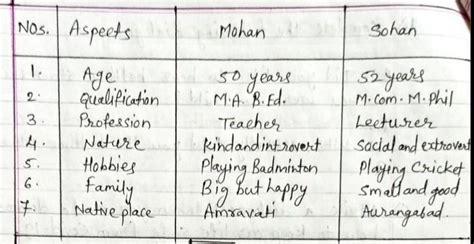 Nos. Aspects Mohan Sohan
1. Age 50 years 52 years
2. Qualification M.A. B.Ed. M.com. M.Phil
3. Profession Teacher Lecturer
4. Nature Kind and introvert Social and extrovert
5. Hobbies Playing Badminton Playing Cricket
6. Family Big but happy Small and good
7. Native place Amravati Aurangabad.